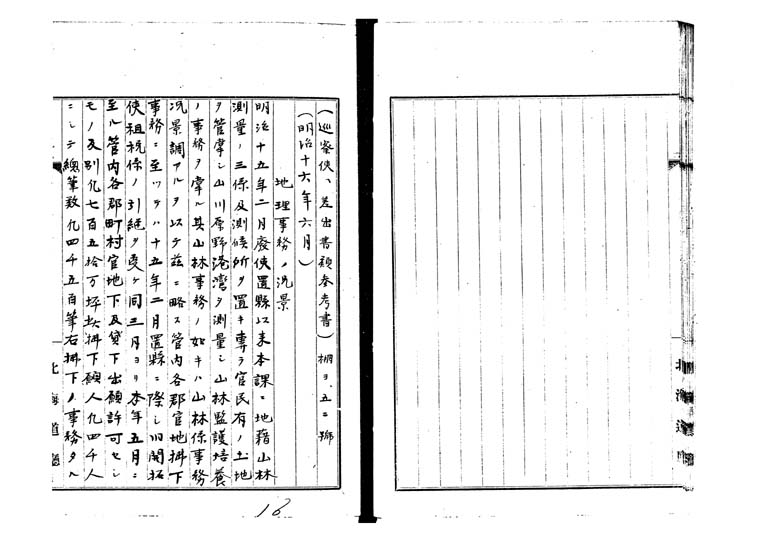 (巡察使ヘ差出書類参考書) 棚ヨ、五ニ號
(明治十六年六月)
地理事務ノ況景
明治十五年二月廃使置縣以来本課ニ地藉山林
測量ノ三係及測候所ヲ置キ専ラ官民有ノ土地
ヲ管掌シ山川原野港湾ヲ測量シ山林監護培養
ノ事務ヲ掌ル其山林事務ノ如キハ山林係事務
况景調アルヲ以テ茲ニ略ス管内各郡官地拂下
事務ニ至ツテハ十五年二月置縣ニ際シ旧開拓
使租税係ノ引継ヲ受ケ同三月ヨリ本年五月ニ
至ル管内各郡町村官地下及貸下出願許可セシ
モノ反別凡七百五拾万坪拂下願人凡四千人
ニシテ總筆数凡四千五百筆右拂下ノ事務タル
北海道廳
北海道廳
18